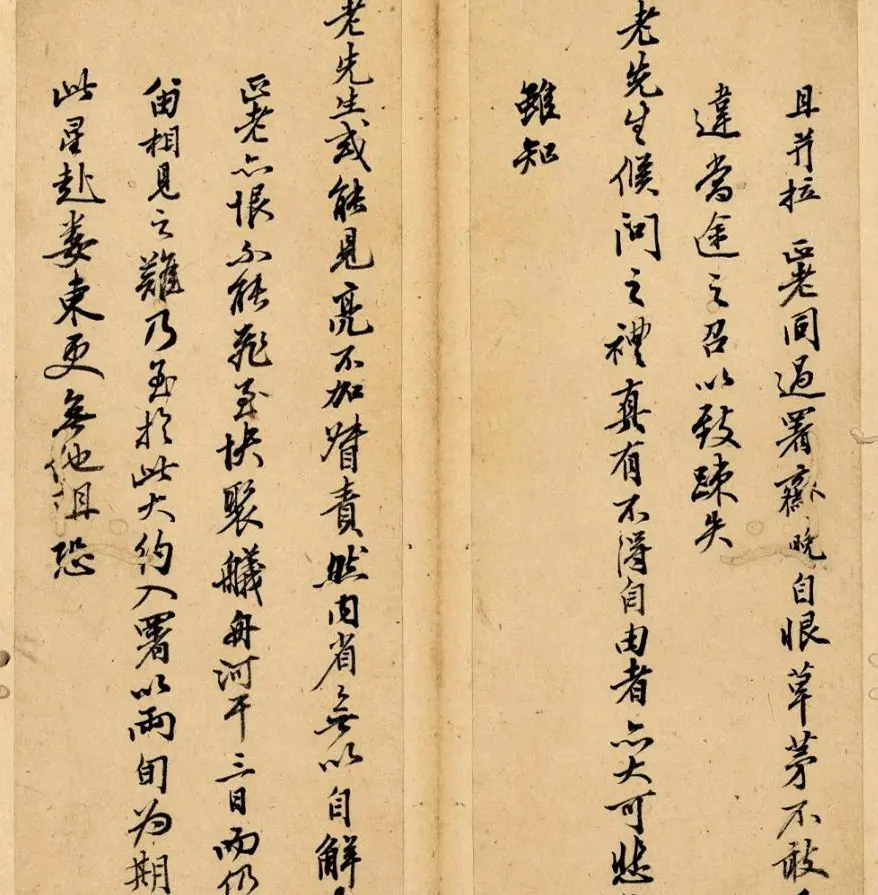 且并拉 匹老同過署齋晚自恨草茅不敢
違當途之召以致疎失
老先生候問之禮真有不得自由者亦大可悲
雖知
老先生或能見亮不加督責然内省無以自解
匹老亦恨不能飛至快聚艤舟河干三日而仍
留相見之難乃至於此大約入署以兩旬為期
此星赴婁東更無他 恐